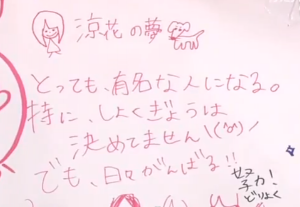 涼花の夢
とっても、有名な人になる。
特に、しょくぎょうは
決めてません\(^o^)/
でも、日々がんばる!!
努力!
どりょく